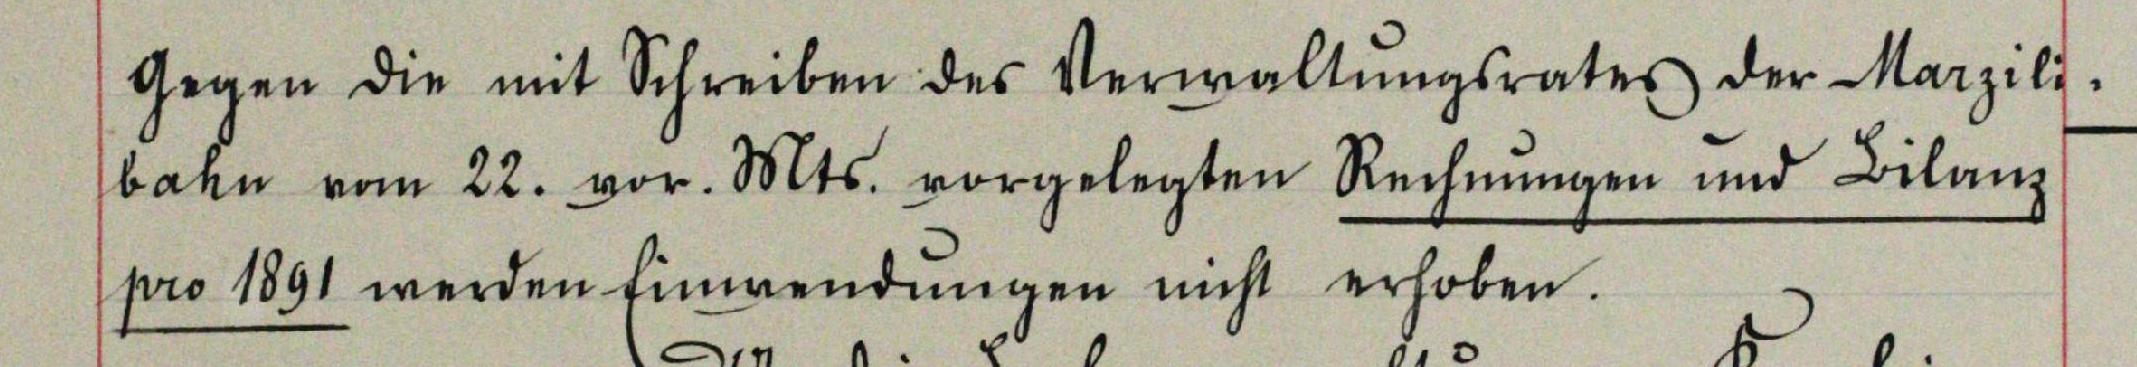 Gegen die mit Schreiben des Verwaltungsrates der Marzili-
bahn vom 22. vor. Mts. vorgelegten Rechnungen und Bilanz
pro 1891 werden Einwendungen nicht erhoben.